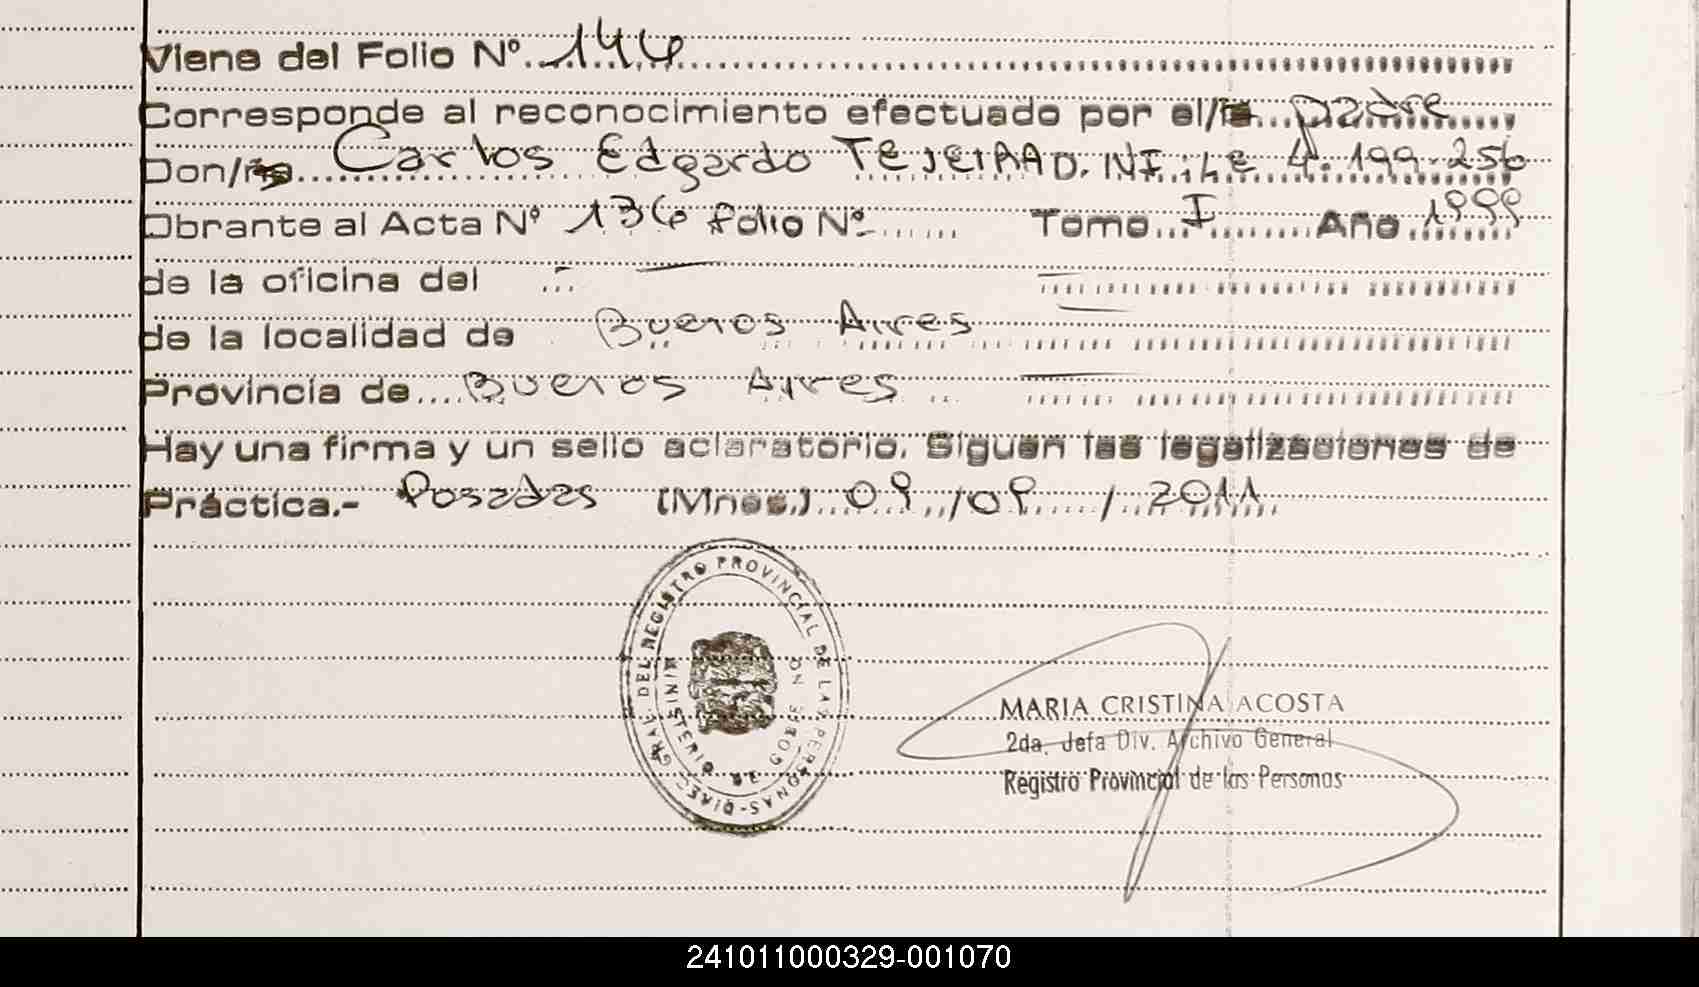 Viene del Folio Nº 146
Corresponde al reconocimiento efectuado por el/la padre
Don/ña Carlos Edgardo TEJEIRA D.NI.:LE 4.199.256
Obrante al Acta Nº 136 folio Nº Tomo I Año 1999
de la oficina del
de la localidad de Buenos Aires
Provincia de Buenos Aires
Hay una firma y un sello aclaratorio. Siguen las legalizaciones de
Práctica.- Posadas (Mnes.) 09/09/2011
GRAL. DEL REGISTRO PROVINCIAL DE LAS PERSONAS
MINISTERIO DE GOBIERNO
MARIA CRISTINA ACOSTA
2da. Jefa Div. Archivo General
Registro Provincial de las Personas
241011000329-001070